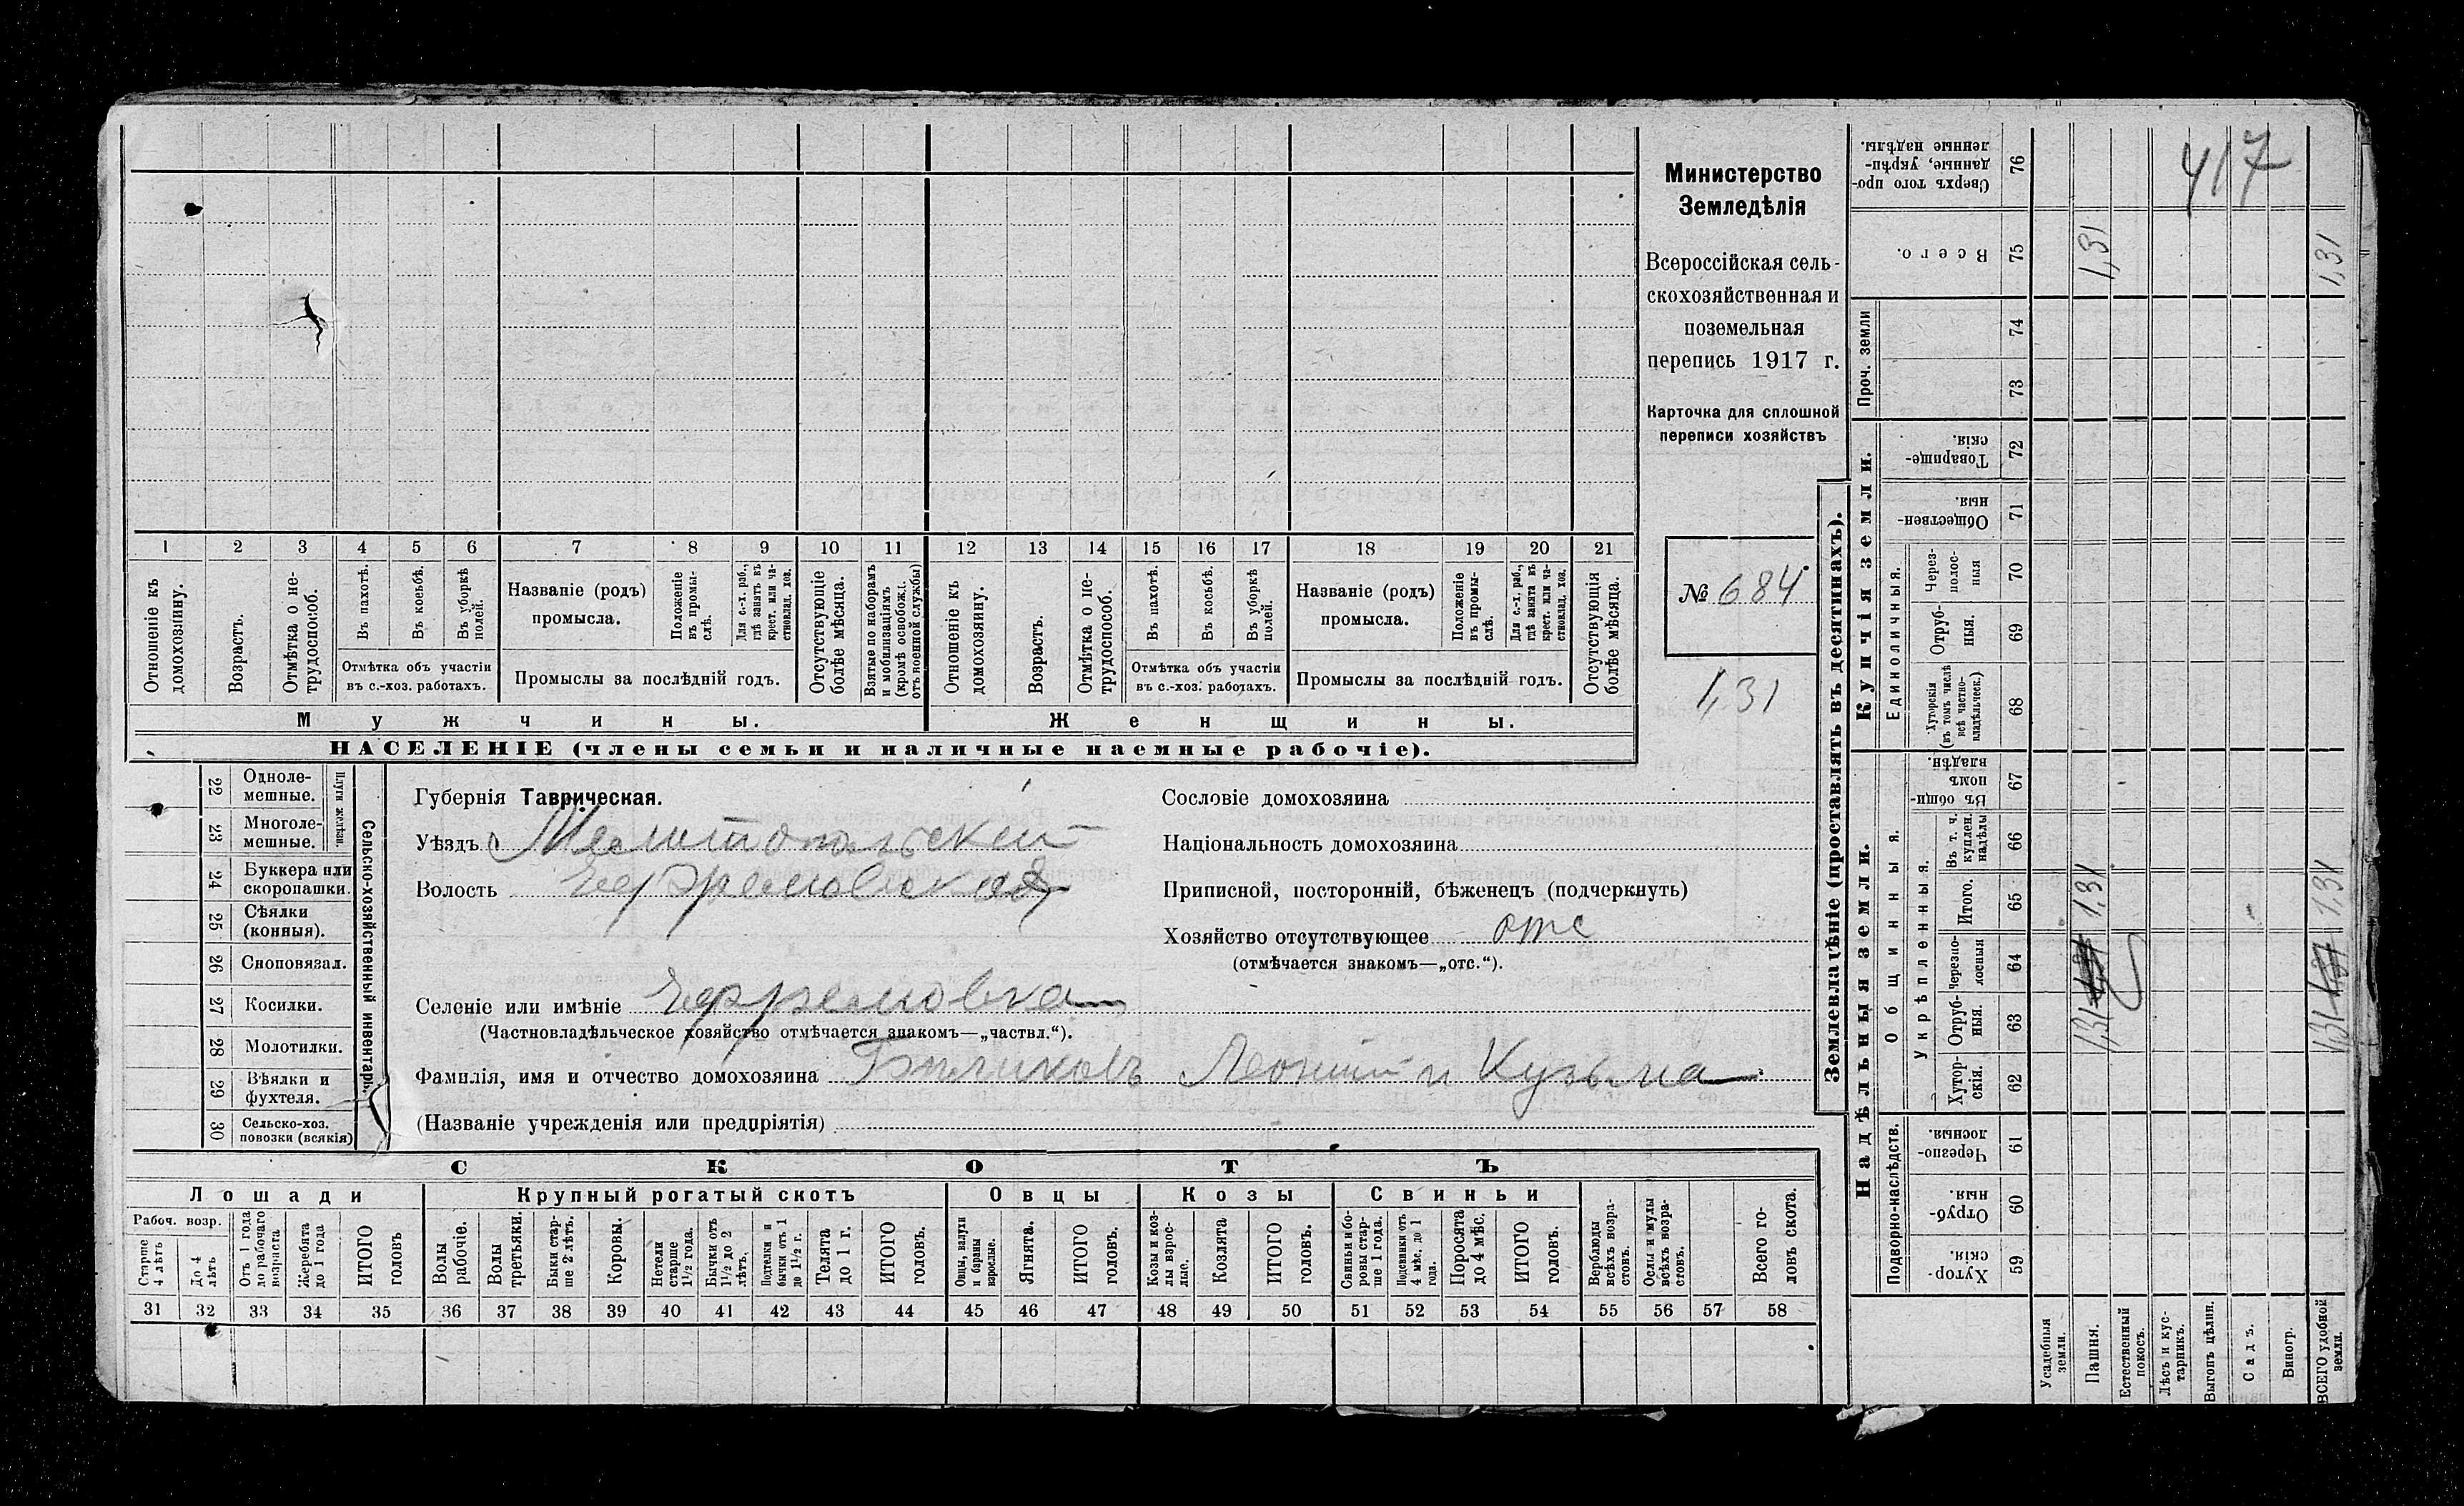 Министерство
Земледѣлія
Всероссійская сель-
скохозяйственная и
поземельная
перепись 1917 г.
Карточка для сплошной
переписи хозяйствъ
№ 684
1,31
1 2 3 4 5 6 7 8 9 10 11 12 13 14 15 16 17 18 19 20 21
Отношеніе къ домохозяину.
Возрастъ.
Отмѣтка о не-трудоспособ.
Въ пахотѣ.
Въ косьбѣ.
Въ уборкѣ полей.
Отмѣтка объ участіи
въ с.-хоз. работахъ.
Названіе (родъ)
промысла.
Положеніе въ промы-слѣ.
Для с.-х. раб., гдѣ занятъ въ крест. или ча-стновлад. хоз.
Промыслы за послѣдній годъ.
Отсутствующіе болѣе мѣсяца.
Взятые по наборамъ и мобилизаціямъ (кромѣ освобожд. отъ военной службы)
Отношеніе къ домохозяину.
Возрастъ.
Отмѣтка о не-трудоспособ.
Въ пахотѣ.
Въ косьбѣ.
Въ уборкѣ полей.
Отмѣтка объ участіи
въ с.-хоз. работахъ.
Названіе (родъ)
промысла.
Положеніе въ промы-слѣ.
Для с.-х. раб., гдѣ занята въ крест. или ча-стновлад. хоз.
Промыслы за послѣдній годъ.
Отсутствующія болѣе мѣсяца.
Мужчины. Женщины.
НАСЕЛЕНІЕ (члены семьи и наличные наемные рабочіе).
Сельско-хозяйственный инвентарь.
Плуги желѣзн.
22 Одноле-мешные.
23 Многоле-мешные.
24 Буккера или скоропашки.
25 Сѣялки (конныя).
26 Сноповязал.
27 Косилки.
28 Молотилки.
29 Вѣялки и фухтеля.
30 Сельско-хоз. повозки (всякія)
Губернія Таврическая.
Уѣздъ Мелитопольскій
Волость Ефремовская
Селеніе или имѣніе Ефремовка
(Частновладѣльческое хозяйство отмѣчается знакомъ—„частвл.“).
Фамилія, имя и отчество домохозяина Леонтій и Кузьма
(Названіе учрежденія или предпріятія)
Сословіе домохозяина
Національность домохозяина
Приписной, посторонній, бѣженецъ (подчеркнуть)
Хозяйство отсутствующее отс
(отмѣчается знакомъ—„отс.“).
СКОТЪ
Лошади Крупный рогатый скотъ Овцы Козы Свиньи
Рабоч. возр.
Старше 4 лѣтъ
До 4 лѣтъ
Отъ 1 года до рабочаго возраста
Жеребята до 1 года
ИТОГО головъ
Волы рабочіе.
Волы третьяки.
Быки стар-ше 2 лѣтъ.
Коровы.
Нетели старше 1½ года.
Бычки отъ 1½ до 2 лѣтъ.
Подтелки и бычки отъ 1 до 1½ г.
Телята до 1 г.
ИТОГО головъ.
Овцы, валухи и бараны взрослые.
Ягнята.
ИТОГО головъ.
Козы и коз-лы взрос-лые.
Козлята
ИТОГО головъ.
Свиньи и бо-ровы стар-ше 1 года.
Подсвинки отъ 4 мѣс. до 1 года.
Поросята до 4 мѣс.
ИТОГО головъ.
Верблюды всѣхъ возра-стовъ.
Ослы и мулы всѣхъ возра-стовъ.
Всего го-ловъ скота.
31 32 33 34 35 36 37 38 39 40 41 42 43 44 45 46 47 48 49 50 51 52 53 54 55 56 57 58
Землевладѣніе (проставлять въ десятинахъ).
417
Сверхъ того про-данные, укрѣп-ленные надѣлы. 76
Всего. 75 1,31 1,31
Проч. земли 74 73
Купчія земли.
Товарище-скія. 72
Обществен-ныя. 71
Единоличныя.
Через-полос-ныя 70
Отруб-ныя. 69
Хуторскія (въ томъ числѣ всѣ частно-владѣльческ.) 68
Надѣльныя земли.
Общинныя.
Въ общи-помъ владѣн. 67
Укрѣпленныя.
Въ т. ч. куплен. надѣлы 66
Итого. 65 1,31 1,31
Черезпо-лосныя 64
Отруб-ныя. 63 1,31 1,31
Хутор-скія. 62
Подворно-наслѣдств.
Черезпо-лосныя. 61
Отруб-ныя. 60
Хутор-скія. 59
Усадебныя земли.
Пашня.
Естественный покосъ.
Лѣсъ и кус-тарникъ.
Выгонъ цѣлин.
Садъ.
Виногр.
ВСЕГО удобной земли.